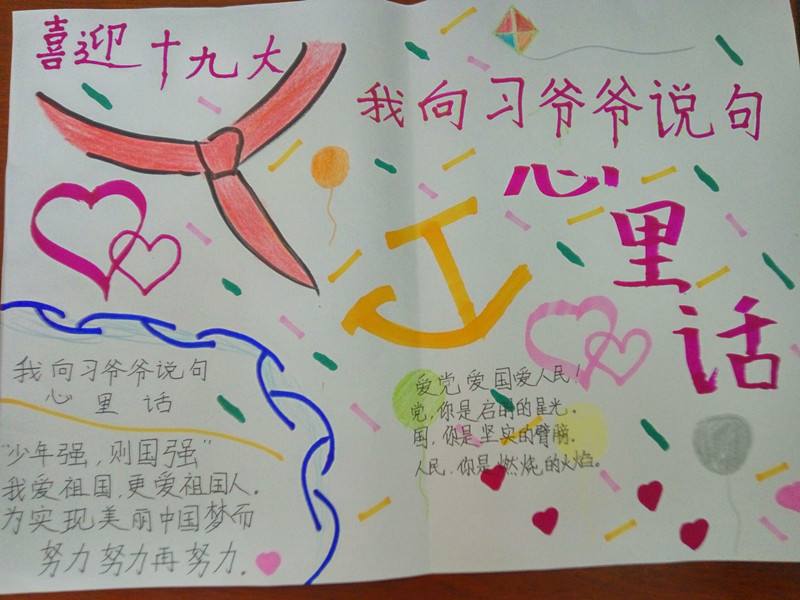 喜迎十九大
我向习爷爷说句
心里话
我向习爷爷说句
心里话
"少年强,则国强"
我爱祖国,更爱祖国人.
为实现美丽中国梦而
努力努力再努力.
爱党爱国爱人民!
党,你是启明的星光.
国,你是坚实的臂膀.
人民,你是燃烧的火焰.